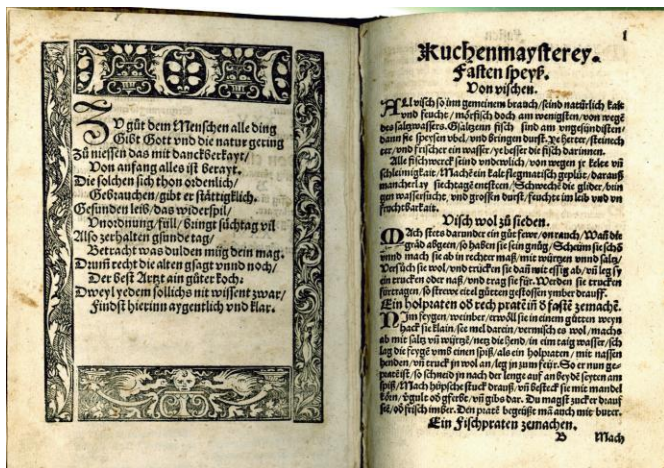 ZV gůt dem Menschen alle ding
Gibt Gott vnd die natur gering
Zů niessen das mit danckberkayt/
Von anfang alles ist berayt.
Die solchen sich thon ordenlich/
Gebrauchen/ gibt er stättigklich.
Gesunden leib/ das widerspil/
Vnordnung/ füll/ bringt süchtag vil
Also zerhalten gsunde tag/
Betracht was dulden müg dein mag.
Drumm recht die alten gsagt vnnd noch/
Der best Artzt ain gůter koch:
Dweyl yedem sollichs nit wissent zwar/
Findst hierinn aygentlich vnd klar.
1
Kuchenmaysterey.
Fasten speyß.
Von vischen.
ALl visch so inn gemeinem brauch/ seind natürlich kalt
vnd feucht/ mörfisch doch am wenigsten/ von wegē
des saltzwassers. Gsaltzenn fisch sind am vngesündisten/
dann sie speysen vbel/ vnd bringen durst. ye herter/ steinech
ter/ vnd frischer ein wasser/ ye besser die fisch darinnen.
Alle fischwerck seind vndewlich/ von wegen je kelte vñ
schleimigkait/ Machē ein kalt flegmatisch geplüt/ darauß
mancherlay siechtagē entsteen/ Schwechē die glider/ brin
gen wassersucht/ vnd grossen durst/ feuchte im leib vnd vn
fruchtbarkait.
Visch wol zů sieden.
MAch stets darunder ein gůt fewr/ on rauch/ Wañ die
gräd abgeen/ so haben sie sein gnůg/ Scheum sie schō
vnnd mach sie ab in rechter maß/ mit würtzen vnnd saltz/
Versůch sie wol/ vnd trücken sie dañ mit essig ab/ vñ leg sy
ein trucken oder naß/ vnd trag sie für. Werden sie trucken
fürtragen/ so strewe eitel gůten gestossen ymber drauff.
Ein holpraten od rech pratē in d fastē zemachē.
NIm feygen/ weinber/ erwöll sie in einem gůten weyn
hack sie klain/ see mel darein/ vermisch es wol/ machs
ab mit saltz vñ würtzē/ netz die hend/ in eim taig wasser/ sch
lag die feygē vmb einen spiß/ als ein holpraten/ mit nassen
henden/ vñ truck jn wol an/ leg jn zum feür. So er nun ge-
pratē ist/ so schneid jn nach der lenge auf an beydē seyten am
spiß/ Mach hüpsche stuck drauß/ vñ besteck sie mit mandel
körn/ vgult od gferbt/ vñ gibs dar. Du magst zucker drauf
seē/ od frisch imber. Den pratē begeüßt mā auch mit buter.
Ein Fischpraten zemachen.
B Mach